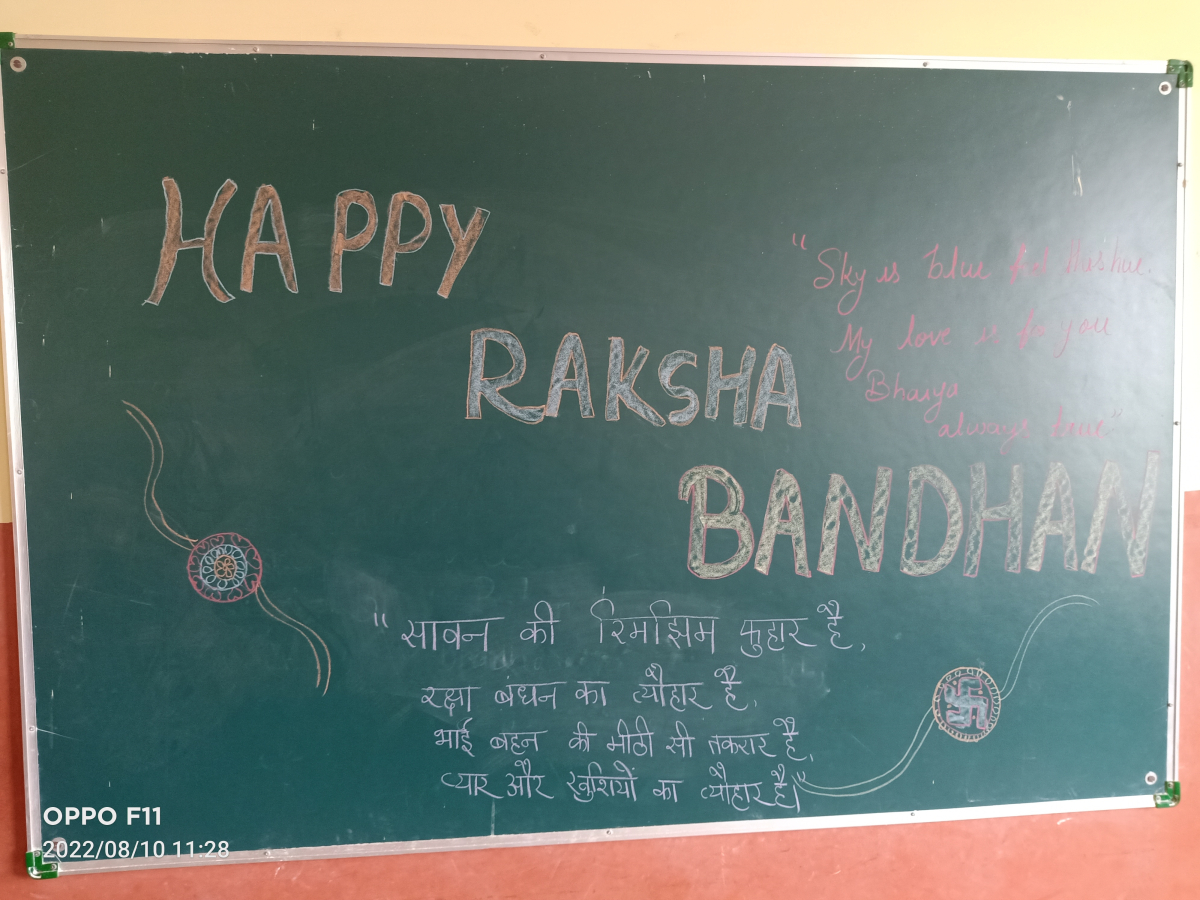 HAPPY
RAKSHA
BANDHAN
"Sky is blue
My love is to you
Bhaiya
always true"
"सावन की रिमझिम फुहार है,
रक्षा बंधन का त्यौहार है,
भाई बहन की मीठी सी तकरार है,
प्यार और खुशियों का त्यौहार है।"
OPPO F11
2022/08/10 11:28